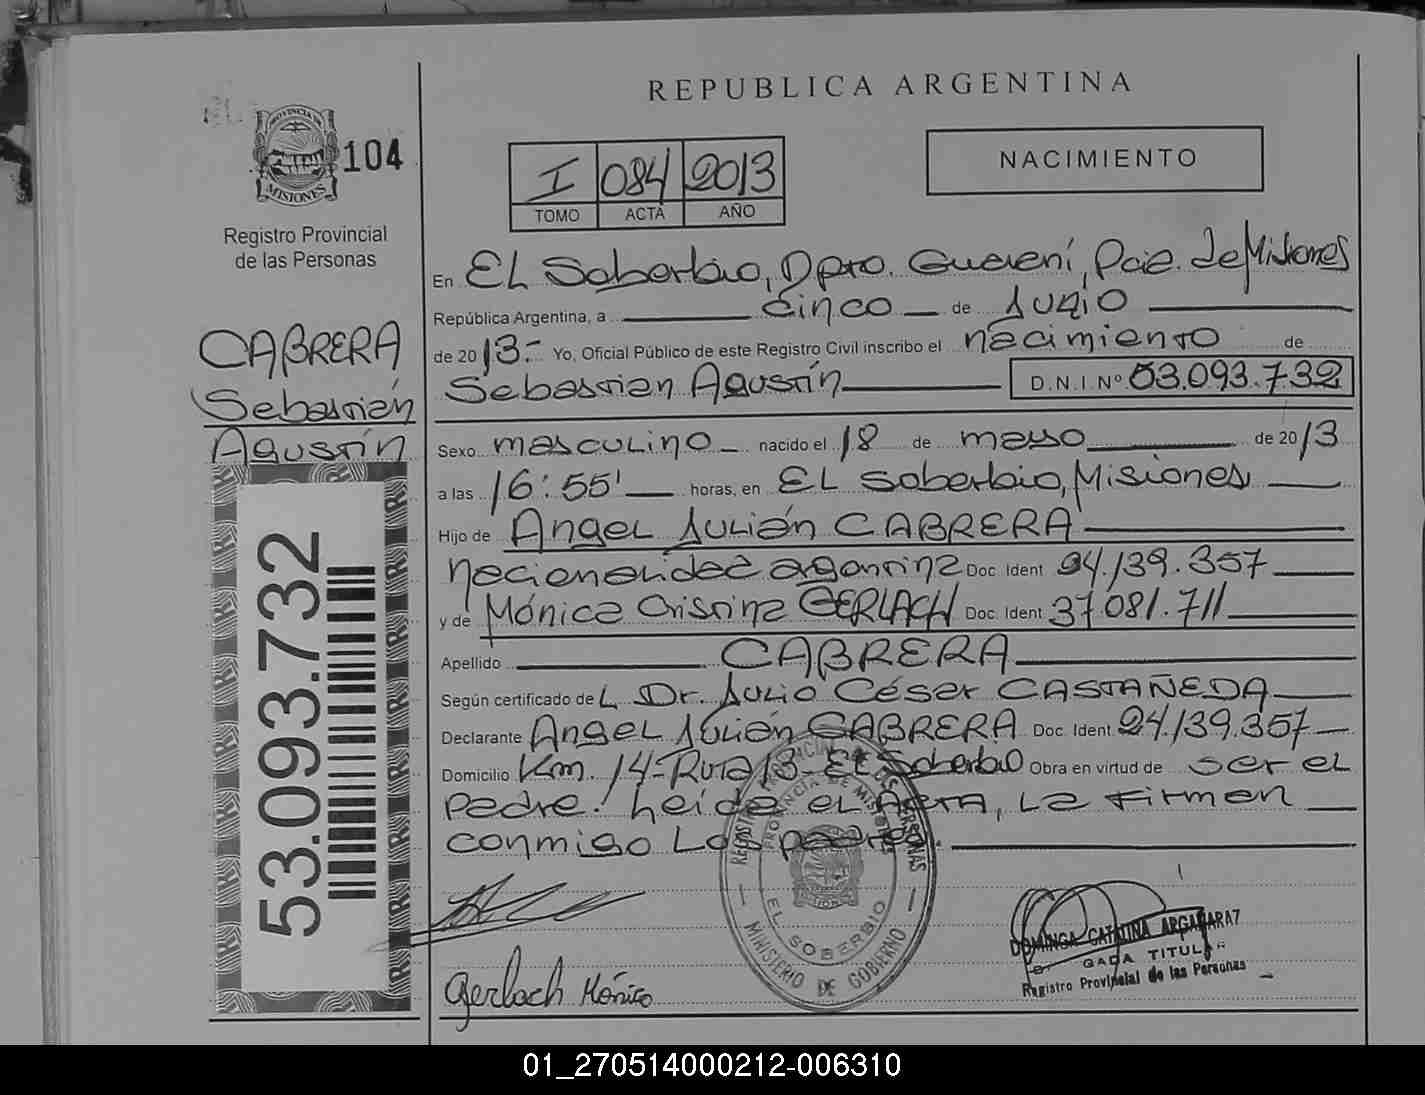 REPUBLICA ARGENTINA
PROVINCIA DE
MISIONES
104
Registro Provincial
de las Personas
I 084 2013
TOMO ACTA AÑO
NACIMIENTO
CABRERA
Sebastián
Agustín
53.093.732
En EL Soberbio, Dpto. Guaraní, Pcia. de Misiones
República Argentina, a cinco de Julio
de 2013.- Yo, Oficial Público de este Registro Civil inscribo el nacimiento de
Sebastian Agustín D.N.I. Nº 53.093.732
Sexo masculino nacido el 18 de mayo de 2013
a las 16:55' horas, en EL Soberbio, Misiones
Hijo de Angel Julián CABRERA
nacionalidad argentina Doc. Ident 24.139.357
y de Mónica Cristina GERLACH Doc. Ident 37.081.711
Apellido CABRERA
Según certificado del Dr. Julio César CASTAÑEDA
Declarante Angel Julián CABRERA Doc. Ident. 24.139.357
Domicilio Km. 14-Ruta 13- El Soberbio Obra en virtud de ser el
padre. Leída el Acta, La firman
conmigo Los padres.
REGISTRO PROVINCIAL DE LAS PERSONAS
PROVINCIA DE MISIONES
EL SOBERBIO
MINISTERIO DE GOBIERNO
Gerlach Mónica
DOMINGA CATALINA
TITULAR
Registro Provincial de las Personas
01_270514000212-006310